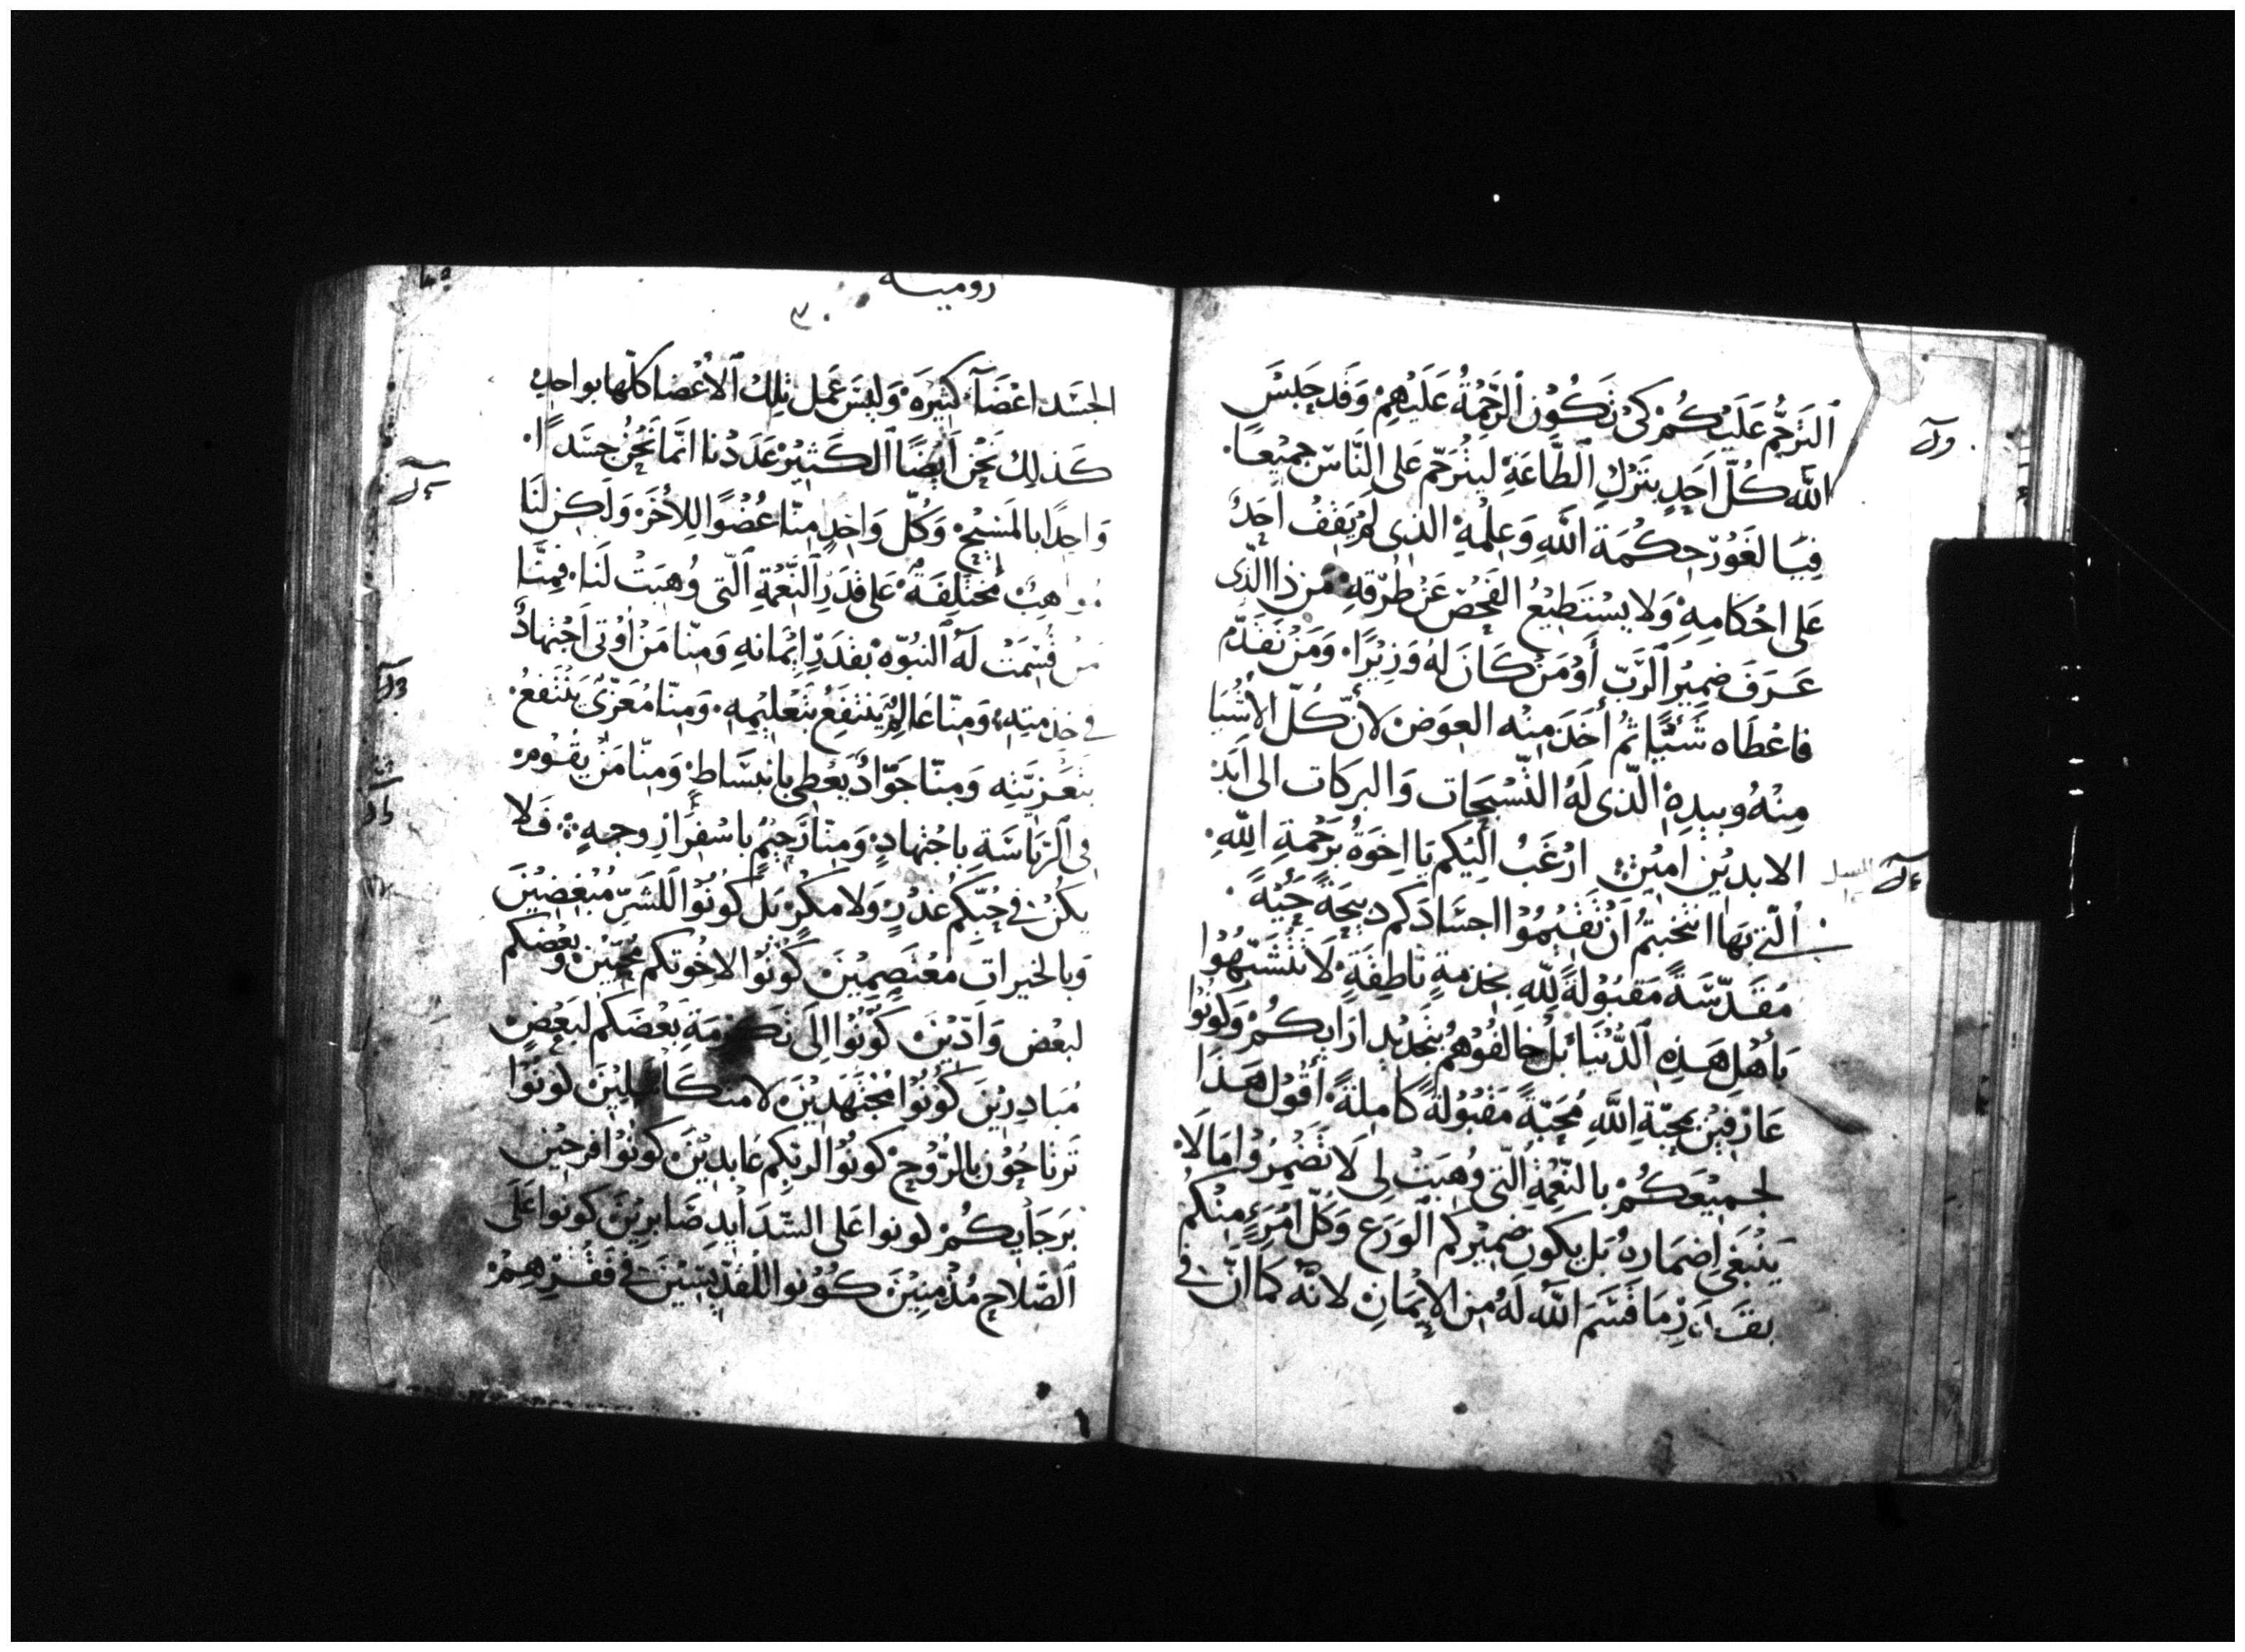 ٱلتَرَحُّمُ عَلَيْكُمْ كَىْ تَكُوْن ٱلرَّحْمَةُ عَلَيْهِمْ وَقَد حَبَسَ
اللَّه كُلَّ اَحَدٍ بتَرْكِ ٱلطَّاعَةِ ليَتُرَحَّم عَلى النَّاسِ جَمِيْعًا.
فيَا لغَوْر حِكْمَة اللَّهِ وَعِلْمِهِ الذى لَمْ يَقِفْ اَحَدٌ
عَلى احْكَامِهِ وَلا يسْتَطِيْعُ الفَحْصَ عَنْ طُرُقِهِ مَن ذا الَّذى
عَرَفَ ضَمِيْرَ ٱلرَّبِّ أَوْ مَنْ كَانَ لهُ وَزِيْرًا. وَمَنْ تَقَدَّم
فاعْطَاه شَيْئًا ثُم أَخَذَ مِنْه العِوَض لأنّ كُلّ الأشْيَا
مِنْهُ وبيدِهِ الّذى لَهُ التَّسْبِحَات وَالبرَكَات الى اَبَد
الابديْن اميْن ارْغَبُ اِلَيْكم يَا اخوَةُ برَحْمةِ اللَّهِ.
ٱلّتى بَهَا انتُخِبْتُمْ اَنْ تُقَيْمُوْا اجسَادَكم دبيحَةً حَيّةً.
مُقَدّسَةً مَقبُوْلةً للَّهِ بخدمَةٍ نَاطِقَةٍ لَا تَتشَبَّهُوْا
بَأهْلِ هَذِهِ ٱلدُّنْيَا بَلْ خالفُوْهُمْ بتَجْدِيْدِ ارَايِكُمْ وَكونُوْا
عَارْفِيْنَ بمحَبَّةِ اللَّهِ مُحَبّةً مَقْبُوْلةً كاملةً أقُوْل هَذَا
لجَمِيْعكُمْ بالنِّعْمَةِ الّتى وُهِبَتْ لى لَا تَضْمِرُوْا مَا لَا
يَنْبَغى اِضْمَارهُ بَل يَكون ضَمِيْركم ٱلوَرَع وَكُلّ امْرَءٍ مِنْكمْ
بقَدْرِ مَا قَسَمَ اللَّه لَهُ مِن الإيْمَانِ لانَّه كَمَا انَّ فى
روميه
الجَسَد اعْضَآءً كثيْرَه وَليْسَ عَمَل تِلكَ ٱلأعْضا كلّها بواحِد
كَذلِك نَحْن اَيْضًا الكَثِيْر عَدَدُنا انَّمَا نَحْنُ جَسَدًا.
وَاحِدًا بالمَسِيْحِ وَكُلّ وَاحِدٍ مِنّا عُضْوًا لِلأخَر وَلَكِن لنَا
مُوَاهِبٌ مُختَلِفَةٌ عَلى قَدَرِ ٱلنِّعْمَةِ ٱلّتى وُهِبَتْ لَنَا. فمِنَّا
مَنْ قُسِمَتْ لَهُ ٱلنبُوّه بقَدَرِ اِيْمَانِهِ وَمِنّا مَنْ اُوْتى اَجْتهَادٌ
فى خدْمتِهِ وَمِنّا عَالِمٌ يَنْتَفِعُ بتَعْلِيْمِهِ. وَمِنّا مُعَزّىْ يَنْتَفِعُ
بتَعْزِيَتِهِ وَمِنّا جَوّادٌ يَعْطى بانبسَاطٍ وَمِنّا مَنْ يَقُوْم
فى ٱلرّيَاسَةِ باِجْتهادٍ وَمِنّا رَحِيْمٌ باسْفِرَارِ وجهِهِ فَلا
يكُنْ فى حُبّكُم غدْرٍ وَلا مكْرٍ بَل كُونُوْا للشَرِّ مُبْغِضِيْنَ
وَبالخيرات مُعْتَصِمِيْنَ كُونُوْا لاخُوتكم مُحِبّيْن وبَعْضكم
لبَعْض وَادّيْنَ كُونُوْا اِلَى تَكرمَةِ بَعْضَكم لبَعْضٍ
مُبَادِرِيْنَ كُونُوْا مُجْتَهَدِيْنَ لا مُتكَاسِلِيْنَ كونُوْا
تَرتَاحُوْن بالرّوْحِ كونُوْا لربّكم عَابدِيْنَ كونُوْا فرحِيْن
برَجَايكُمْ كونوا عَلى الشّدَايدِ صَابِرِيْنَ كونوا عَلى
ٱلصَّلاةِ مُدْمِنيْنَ كُوْنوا للقدّيسِيْنَ فى فَقْرهِمْ